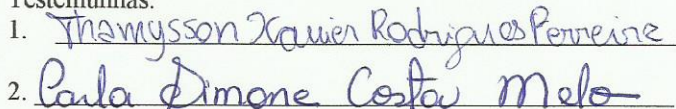 Testemunhas:
1. Thamysson Xavier Rodrigues Perreira
2. Carla Simone Costa Melo